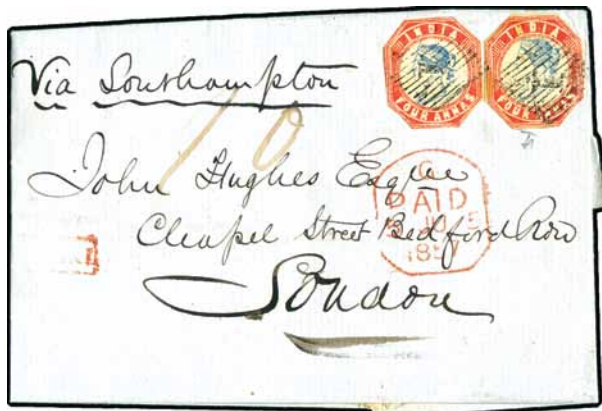 INDIA INDIA
FOUR ANNAS FOUR ANNAS
Via Southampton
10
John Hughes Esqre
PAID
Chapel Street Bedford Row
London